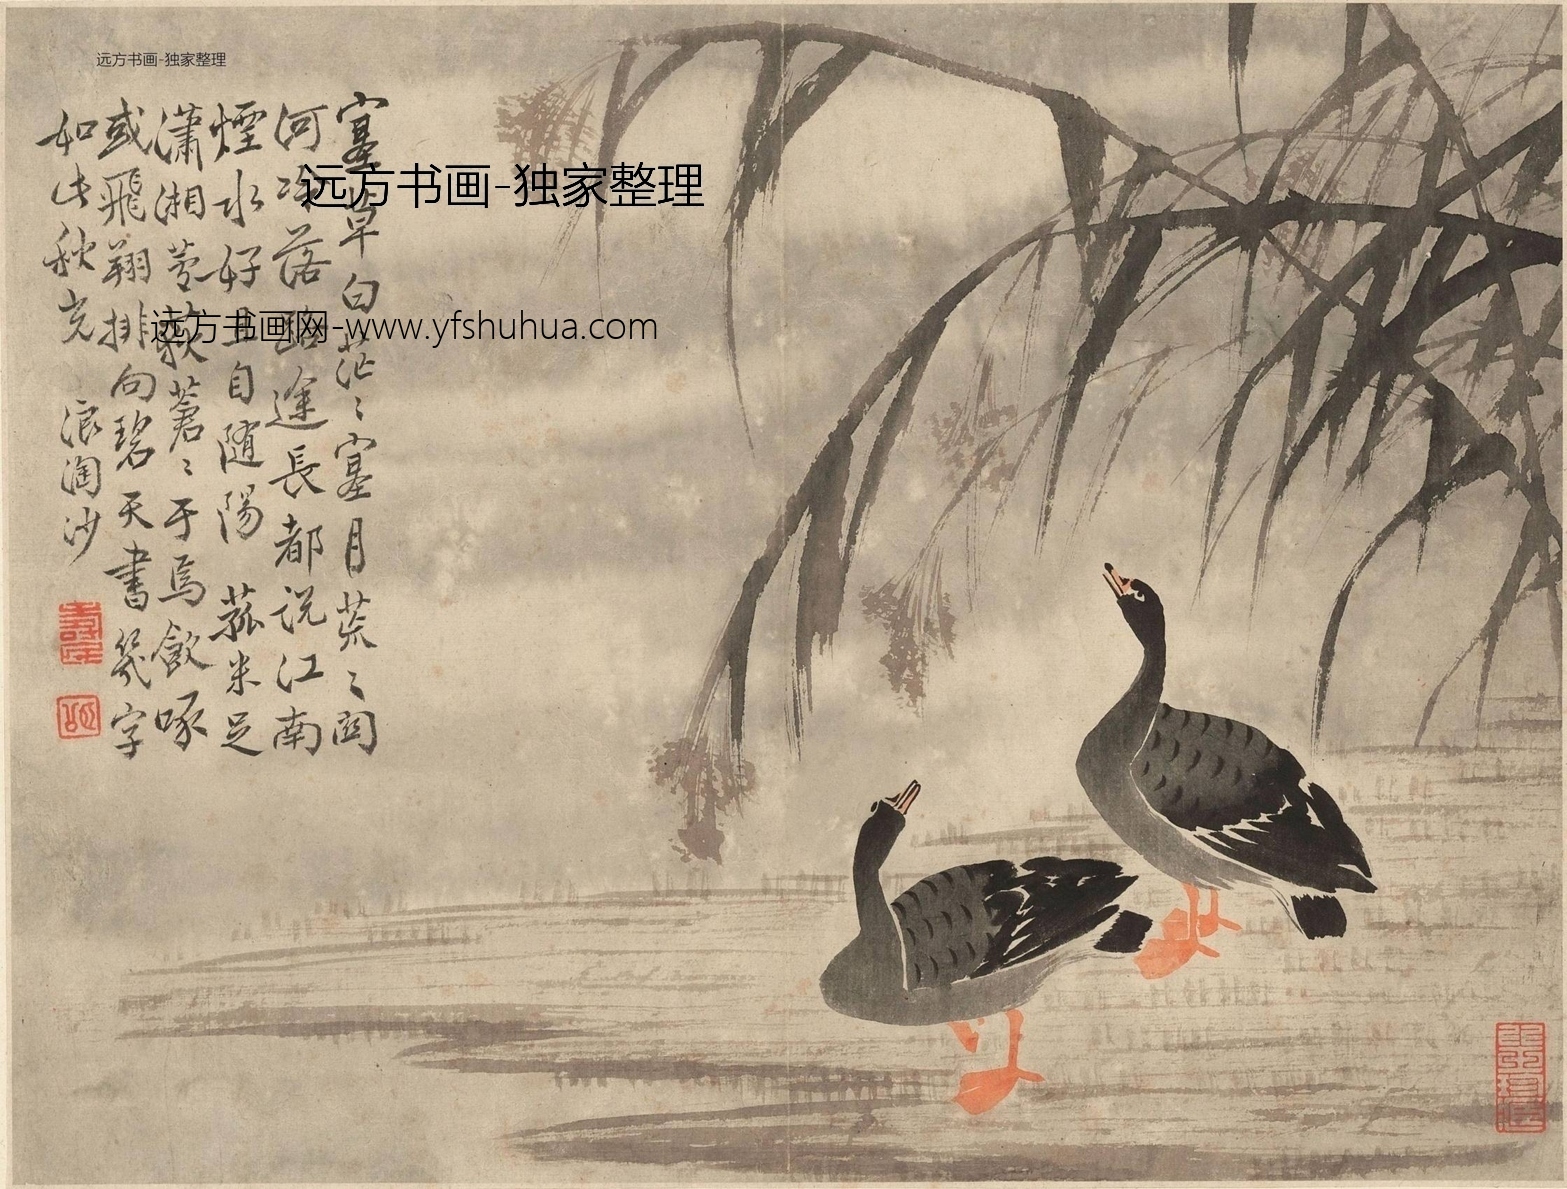 远方书画-独家整理
远方书画-独家整理
远方书画网-www.yfshuhua.com
塞草白茫〻塞月荒〻関
河冷落路途長都说江南
煙水好且自随陽菰米足
瀟湘葭菼蒼〻于焉飲啄
或飛翔排向碧天書幾字
如此秋光
浪淘沙